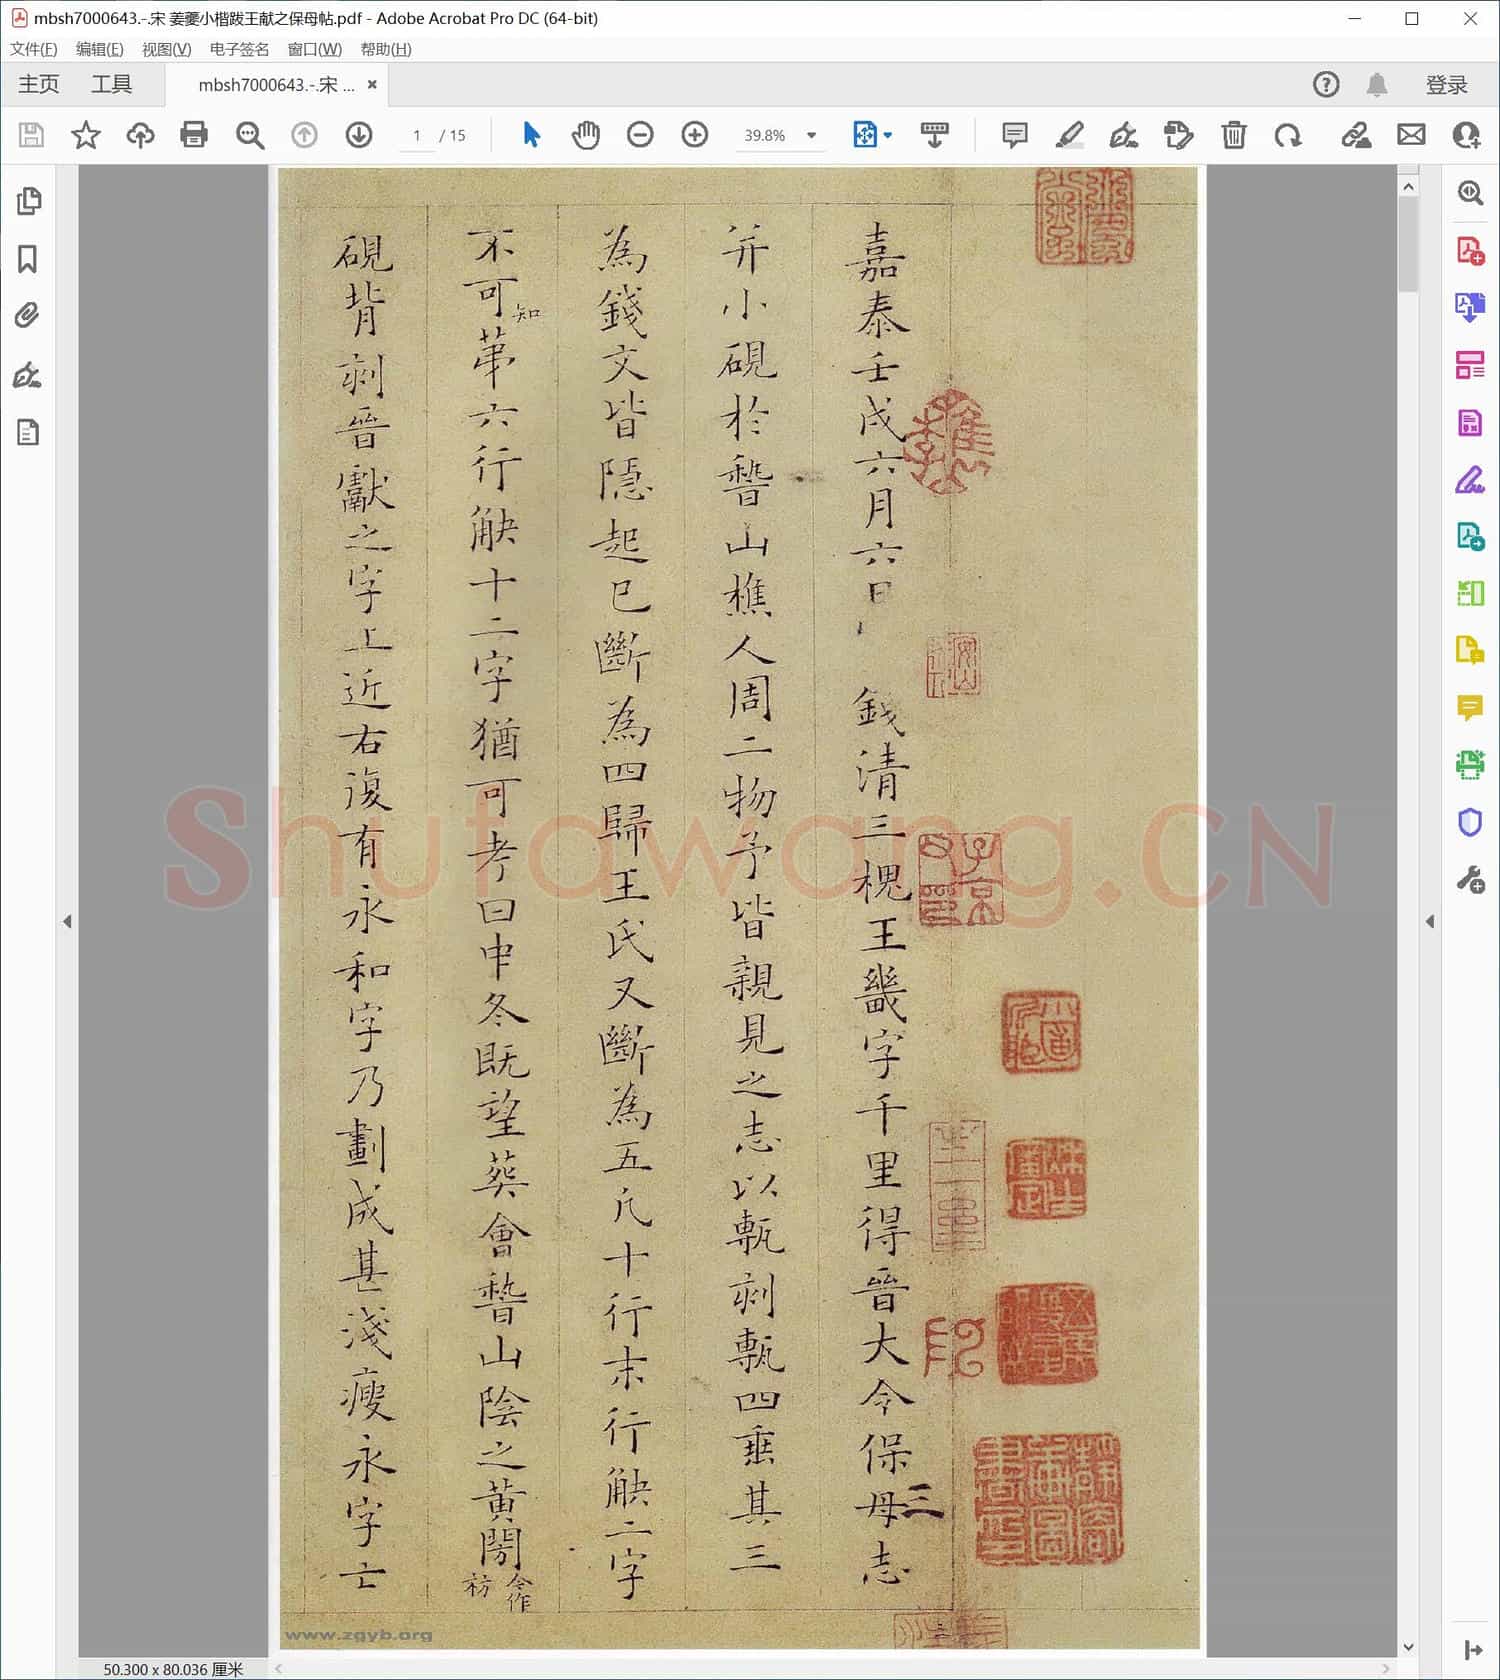 mbsh7000643.-.宋 姜夔小楷跋王献之保母帖.pdf - Adobe Acrobat Pro DC (64-bit)
文件(F) 编辑(E) 视图(V) 电子签名 窗口(W) 帮助(H)
主页 工具 mbsh7000643.-.宋 ... 登录
1 / 15 39.8%
嘉泰壬戌六月六日 錢清三槐王畿字千里得晉大令保母志三
并小硯於稽山樵人周二物予皆親見之志以甎刻甎四垂其三
為錢文皆隱起已斷為四歸王氏又斷為五凡十行末行觖二字
不可知苐六行觖十二字猶可考曰中冬既望葬會稽山陰之黃閍
今作祊
硯背刻晉獻之字上近右復有永和字乃劃成甚淺瘦永字亡
Shufawang.CN
www.zgyb.org
50.300 x 80.036 厘米